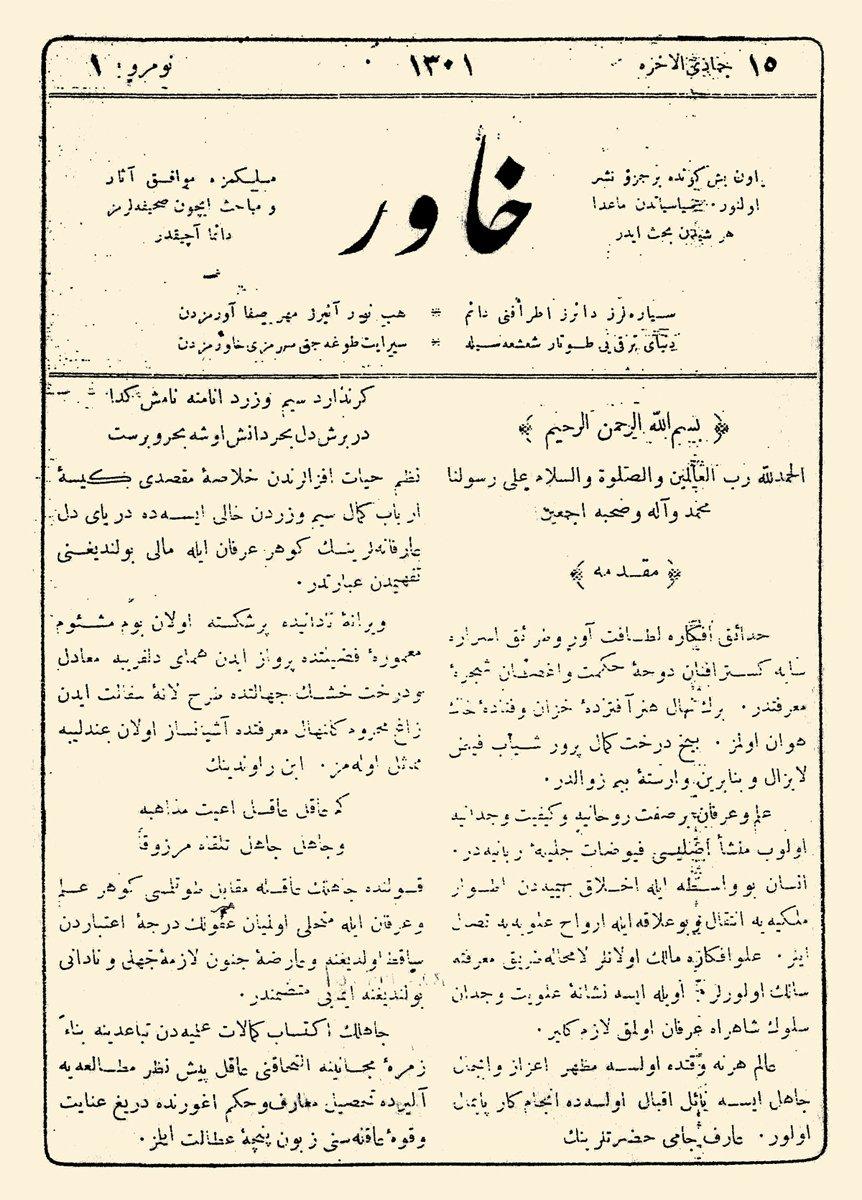 ١٥ جماذى الاخره
١٣٠١
نومرو: ١
خاور
اون بش كونده بر جزؤ نشر
اولنور. سياسياتدن ماعدا
هر شيدن بحث ايدر
مسلكمزه موافق آثار
و مباحث ايچون صحيفه‌لرمز
دائما آچيقدر
سياره‌لرز دائرز اطرافنى دائم * هپ نور آليرز مهر صفا آورمزدن
دنياى ترقى‌يى طوتار شعشعه‌سيله * سيرايت طوغه‌جق سرمدى خاورمزدن
﴿ بسم الله الرحمن الرحيم ﴾
الحمدلله رب العالمين والصلوة والسلام على رسولنا
محمد وآله وصحبه اجمعين
﴿ مقدمه ﴾
حدائق افكاره لطافت آور وطرائق اسراره
سايه كستر افنان دوحهٔ حكمت واغصان شجرهٔ
معرفتدر. برك نهال هنر آفتزدهٔ خزان وفتادهٔ خاك
هوان اولمز. بيخ درخت كمال پرور شيآب فيض
لايزال و بنابرين وارستهٔ بيم زوالدر.
علم وعرفان بر صفت روحانيه وكيفيت وجدانيه
اولوب منشأ اصليسى فيوضات جليلهٔ ربانيه‌در.
انسان بو واسطه ايله اخلاق بهيميه‌دن اطوار
ملكيه‌يه انتقال و بو علاقه ايله ارواح علويه‌يه اتصال
ايلر. علو افكاره مالك اولانلر لامحاله طريق معرفته
سالك اولورلر. اويله ايسه نشانهٔ علويت وجدان
سلوك شاهراه عرفان اولمق لازم كلير.
عالم هر نه وقتده اولسه مظهر اعزاز واجلال
جاهل ايسه نائل اقبال اولسه‌ده انجام كار پايمال
اولور. عارف جامى حضرتلرينك
كر ندارد سيم وزرد انا منه نامش كدا
در برش دل بحر دانش او شه بحر و برست
نظم حيات افزالرندن خلاصهٔ مقصدى كيسهٔ
ارباب كمال سيم وزردن خالى ايسه‌ده درياى دل
عارفانه‌لرينك كوهر عرفان ايله مالى بولنديغنى
تفهيمدن عبارتدر.
ويرانهٔ نادانيده پرشكسته اولان بوم مشئوم
معمورهٔ فضيلتده پرواز ايدن هماى دلفريبه معادل
و درخت خشك جهالتده طرح لانهٔ سفالت ايدن
زاغ محروم كلنهال معرفتده آشيانساز اولان عندليبه
مماثل اوله‌مز. ابن راوندينك
كم عاقل عاقل اعيت مذاهبه
وجاهل جاهل تلقاه مرزوقا
قولنده جاهلك عاقله مقابل طوتلمسى كوهر علم
وعرفان ايله متحلى اولميان عقولك درجهٔ اعتباردن
ساقط اولديغنه وعارضهٔ جنون لازمهٔ جهل و نادانى
بولنديغنه ايمايى متضمندر.
جاهلك اكتساب كمالات علميه‌دن تباعدينه بناءً
زمرهٔ مجانينه التحاقنى عاقل پيش نظر مطالعه‌يه
آليرده تحصيل معارف وحكم اغورنده دريغ عنايت
وقوهٔ عاقله‌سنى زبون پنجهٔ عطالت ايلمز.